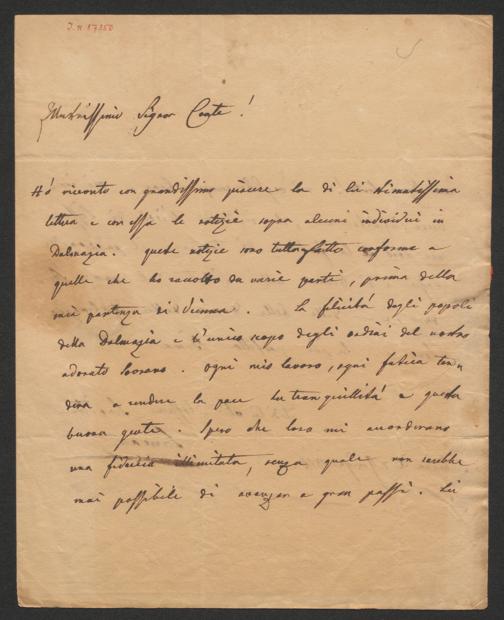 J. N. 17350
Illustrissimo Signor Conte!
Hó ricevuto con grandissimo piacere la di lei stimatissima
lettera e con essa le notizie sopra alcuni individui in
Dalmazia. queste notizie sono tuttaffatto conforme a
quelle che ho raccolto da varie parti, prima della
mia partenza di Vienna. La felicitá degli popoli
della Dalmazia e l'unico scopo degli ordini del nostro
adorato Sovrano. ogni mio lavoro, ogni fatica ten=
derá a rendere la pace la tranquillitá a questa
buona gente. Spero che loro mi accorderano
una fiducia illimitata, senza quale non sarebbe
mai possibile di avanzar a gran passi. Lei